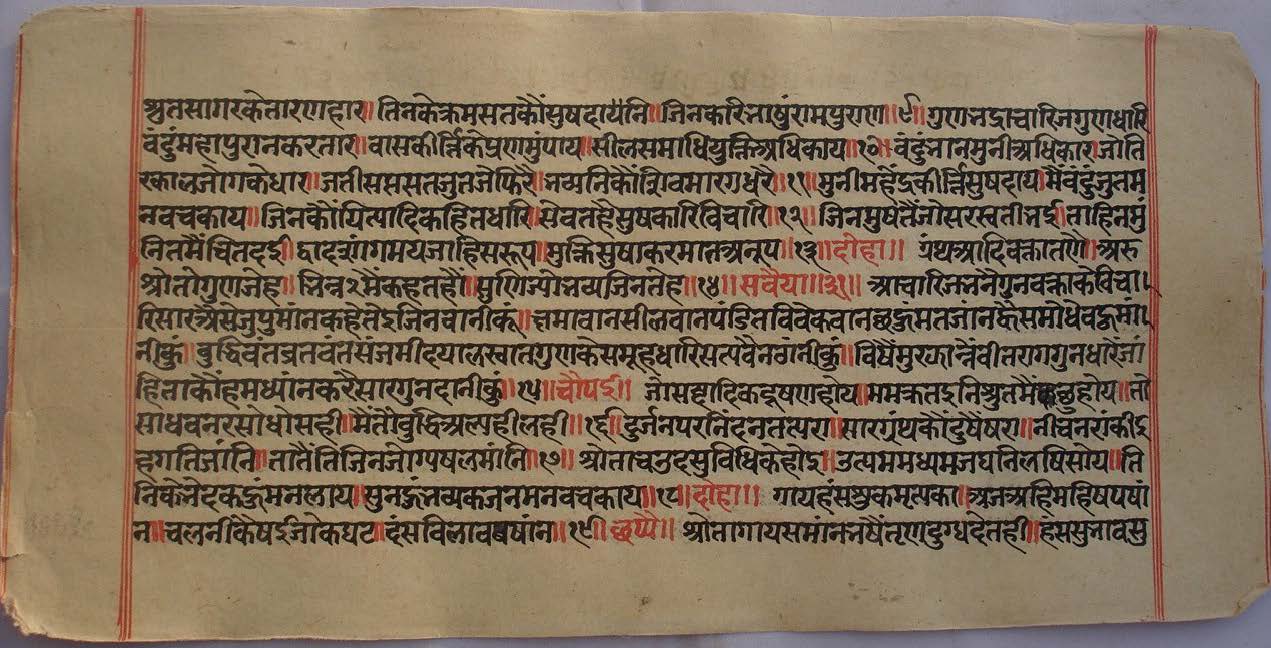 श्रुतसागरकेतारणहार॥ तिनकेक्रमसतकौंसुषदायनि॥ जिनकरिभाषुंरामपुराण॥९॥ गुणभद्राचारिजगुणधारि
वंदुंमहापुरानकरतार॥ वासकीर्त्तिकेप्रणमुंपाय॥ सीलसमाधियुक्तिअधिकाय॥१०॥ वंदुंभानमुनीअधिकार॥ जोति
रकालजोगकेधार॥ जतीसप्तसतजुतजेफिरै॥ भव्यनिकौंशिवमारगधरै॥११॥ मुनीमहेंद्रकीर्त्तिसुषदाय॥ मैवंदुंजुतम
नवचकाय॥ जिनकौंग्रिंत्यादिकहितधारि॥ सेवतहैसुषकारिविचारि॥१२॥ जिनमुषतैंजोसरस्वतीभई॥ ताहिनमुं
नितमैंचितदई॥ द्वादशांगमयजाहिसरूप॥ मुक्तिसुषाकरमातअनूप॥१३॥ दोहा॥ ग्रंथआदिवक्तातणे॥ अरु
श्रोतागुणजेह॥ भिन्न२मैंकहतहौं॥ सुणिज्योभव्यजिनतेह॥१४॥ सवैया॥३१॥ आचारिजभनैगुनवक्ताकेविचा
रिसारअैसेजुपुमांनकहेतेइजिनवानीकूं॥ क्षमावानसीलवानपंडितविवेकवानछहुंमतजांनर्कसमोधैवहुमां
नीकुं॥ बुद्धिवंतव्रतवंतसंजमीदयालस्वातगुणकेसमूहधारिसत्पवैनवांनीकुं॥ विषैंमुरझान्नैंवीतरागगुनधारैजां
हिताकौंहमध्यांनकरैसारगुनदानीकुं॥१५॥ चौपई॥ जोसब्दादिकदूषणहोय॥ ममकृतइनिश्रुतमैंकछुहोय॥ तो
साधवनेरसोधोसही॥ मैंतौवुद्धिअल्पहीलही॥१६॥ दुर्जनपरनिंदनतत्परा॥ सारग्रंथकौंदुषैंषरा॥ नीचनरांकीइ
हगतिजांनि॥ तातैंतजिनजोग्यषलमांनि॥१७॥ श्रोताचतुदसुविधिकेहोइ॥ उत्पममध्यमजघनिलषिसोय॥ ति
निकेभेदकहुंमनलाय॥ सुनहुंभव्यकजनमनवचकाय॥१८॥ दोहा॥ गायहंसशुकमृत्पका॥ अजअहिमहिषपषां
न॥ चलनीकिषईजोकघट॥ हंसविलावबषांन॥१९॥ छप्पै॥ श्रोतागायसमांनभषैंतृणदुग्धदेतही॥ हंससुभावसु